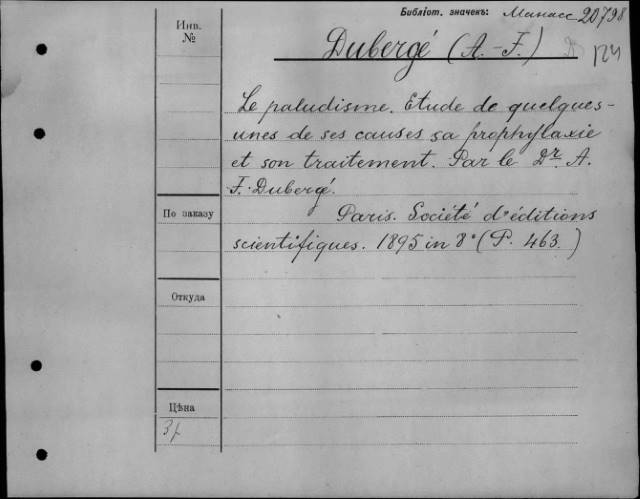 Библіот. значекъ: Манасс 20798
Инв. №
Dubergé (A.-F.)
Le paludisme. Etude de quelques-
unes de ses causes sa prophylaxie
et son traitement. Par le Dr. A.
F. Dubergé.
По заказу
Paris. Société d'éditions
scientifiques. 1895 in 8° (P. 463.)
Откуда
Цѣна
3р